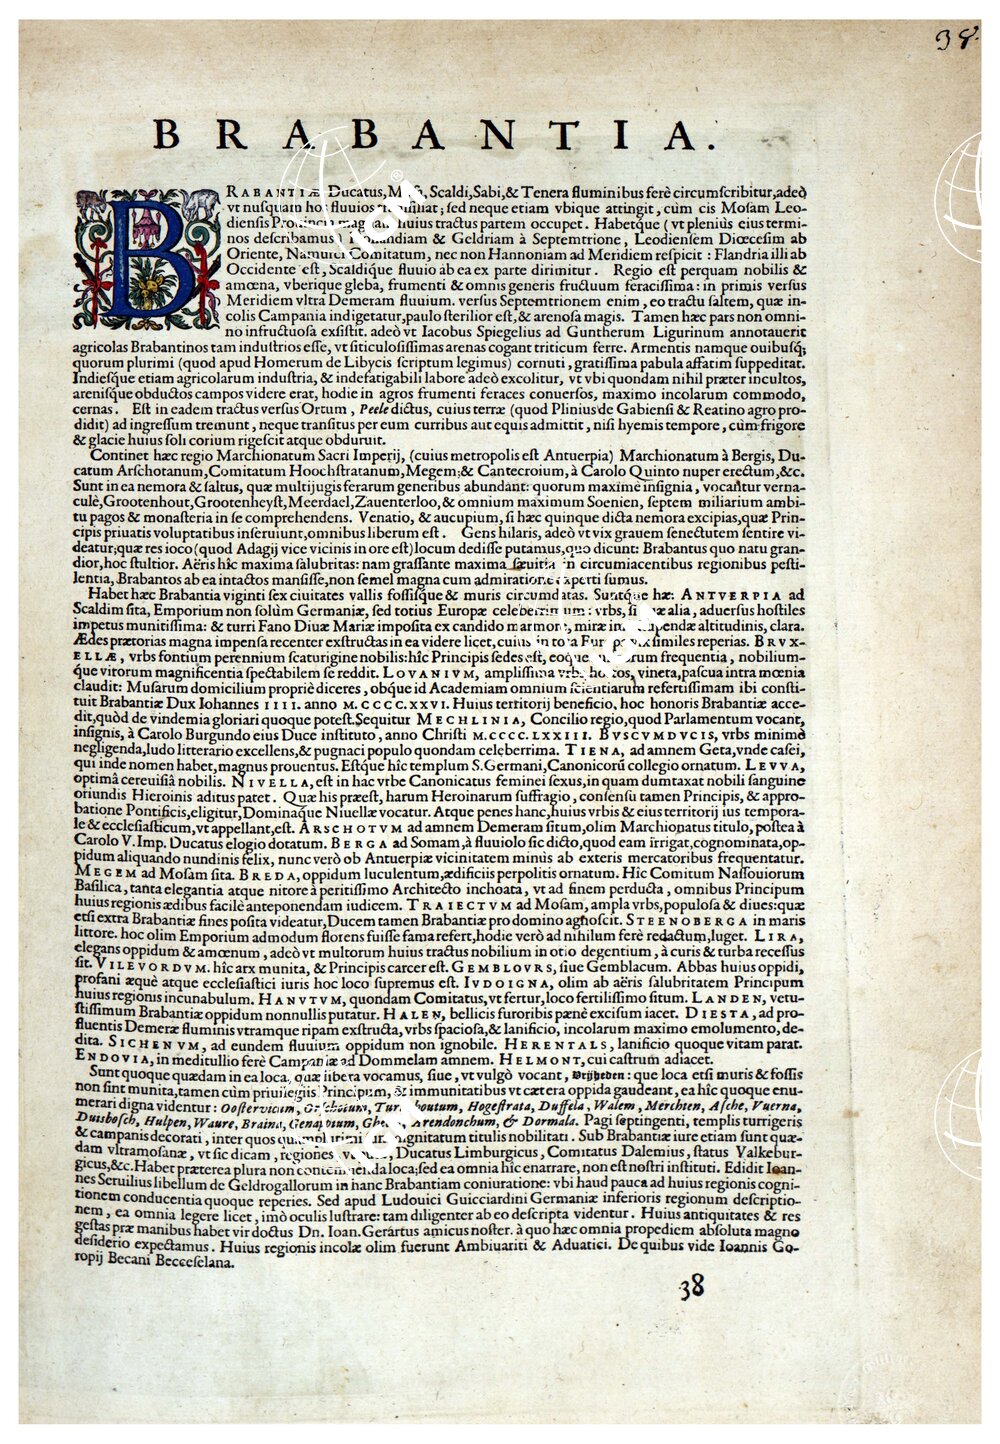 38.
BRABANTIA.
BRABANTIÆ Ducatus, Scaldi, Sabi, & Tenera fluminibus ferè circumſcribitur, adeò
vt nuſquam hos fluuios ; ſed neque etiam vbique attingit, cùm cis Moſam Leo-
dienſis huius tractus partem occupet. Habetque (vt pleniùs eius termi-
nos deſcribamus) Hollandiam & Geldriam à Septemtrione, Leodienſem Diœceſim ab
Oriente, Namurci Comitatum, nec non Hannoniam ad Meridiem reſpicit: Flandria illi ab
Occidente eſt, Scaldíque fluuio ab ea ex parte dirimitur. Regio eſt perquam nobilis &
amœna, vberique gleba, frumenti & omnis generis fructuum feraciſſima: in primis verſus
Meridiem vltrà Demeram fluuium. verſus Septemtrionem enim, eo tractu ſaltem, quæ in-
colis Campania indigetatur, paulo ſterilior eſt, & arenoſa magis. Tamen hæc pars non omni-
no infructuoſa exſiſtit. adeò vt Iacobus Spiegelius ad Guntherum Ligurinum annotauerit
agricolas Brabantinos tam induſtrios eſſe, vt ſiticuloſiſſimas arenas cogant triticum ferre. Armentis namque ouibuſq;
quorum plurimi (quod apud Homerum de Libycis ſcriptum legimus) cornuti, gratiſſima pabula affatim ſuppeditat.
Indieſque etiam agricolarum induſtria, & indefatigabili labore adeò excolitur, vt vbi quondam nihil præter incultos,
areniſque obductos campos videre erat, hodie in agros frumenti feraces conuerſos, maximo incolarum commodo,
cernas. Eſt in eadem tractus verſus Ortum, Peele dictus, cuius terræ (quod Plinius de Gabienſi & Reatino agro pro-
didit) ad ingreſſum tremunt, neque tranſitus per eum curribus aut equis admittit, niſi hyemis tempore, cùm frigore
& glacie huius ſoli corium rigeſcit atque obduruit.
Continet hæc regio Marchionatum Sacri Imperij, (cuius metropolis eſt Antuerpia) Marchionatum à Bergis, Du-
catum Arſchotanum, Comitatum Hoochſtratanum, Megem; & Cantecroium, à Carolo Quinto nuper erectum, &c.
Sunt in ea nemora & ſaltus, quæ multijugis ferarum generibus abundant: quorum maximè inſignia, vocantur verna-
culè, Grootenhout, Grootenheyſt, Meerdael, Zauenterloo, & omnium maximum Soenien, ſeptem miliarium ambi-
tu pagos & monaſteria in ſe comprehendens. Venatio, & aucupium, ſi hæc quinque dicta nemora excipias, quæ Prin-
cipis priuatis voluptatibus inſeruiunt, omnibus liberum eſt. Gens hilaris, adeò vt vix grauem ſenectutem ſentire vi-
deatur; quæ res ioco (quod Adagij vice vicinis in ore eſt) locum dediſſe putamus, quo dicunt: Brabantus quo natu gran-
dior, hoc ſtultior. Aëris hîc maxima ſalubritas: nam graſſante maxima ſæuitia in circumiacentibus regionibus peſti-
lentia, Brabantos ab ea intactos manſiſſe, non ſemel magna cum admiratione experti ſumus.
Habet hæc Brabantia viginti ſex ciuitates vallis foſſiſque & muris circumdatas. Suntque hæ: ANTVERPIA ad
Scaldim ſita, Emporium non ſolùm Germaniæ, ſed totius Europæ celeberrimum: vrbs, ſi quæ alia, aduerſus hoſtiles
impetus munitiſſima: & turri Fano Diuæ Mariæ impoſita ex candido marmore, miræ altitudinis, clara.
Ædes prætorias magna impenſa recenter exſtructas in ea videre licet, cuius in tota Europa vix ſimiles reperias. BRVX-
ELLÆ, vrbs fontium perennium ſcaturigine nobilis: hîc Principis ſedes eſt, eoque frequentia, nobilium-
que virorum magnificentia ſpectabilem ſe reddit. LOVANIVM, ampliſſima vrbs, hortos, vineta, paſcua intra mœnia
claudit: Muſarum domicilium propriè diceres, obque id Academiam omnium ſcientiarum refertiſſimam ibi conſti-
tuit Brabantiæ Dux Iohannes IIII. anno M.CCCC.XXVI. Huius territorij beneficio, hoc honoris Brabantiæ acce-
dit, quòd de vindemia gloriari quoque poteſt. Sequitur MECHLINIA, Concilio regio, quod Parlamentum vocant,
inſignis, à Carolo Burgundo eius Duce inſtituto, anno Chriſti M.CCCC.LXXIII. BVSCVMDVCIS, vrbs minimè
negligenda, ludo litterario excellens, & pugnaci populo quondam celeberrima. TIENA, ad amnem Geta, vnde caſei,
qui inde nomen habet, magnus prouentus. Eſtque hîc templum S. Germani, Canonicorũ collegio ornatum. LEVVA,
optimâ cereuiſiâ nobilis. NIVELLA, eſt in hac vrbe Canonicatus feminei ſexus, in quam dumtaxat nobili ſanguine
oriundis Hieroinis aditus patet. Quæ his præeſt, harum Heroinarum ſuffragio, conſenſu tamen Principis, & appro-
batione Pontificis, eligitur, Dominaque Niuellæ vocatur. Atque penes hanc, huius vrbis & eius territorij ius tempora-
le & eccleſiaſticum, vt appellant, eſt. ARSCHOTVM ad amnem Demeram ſitum, olim Marchionatus titulo, poſtea à
Carolo V. Imp. Ducatus elogio dotatum. BERGA ad Somam, à fluuiolo ſic dicto, quod eam irrigat, cognominata, op-
pidum aliquando nundinis felix, nunc verò ob Antuerpiæ vicinitatem minùs ab exteris mercatoribus frequentatur.
MEGEM ad Moſam ſita. BREDA, oppidum luculentum, ædificiis perpolitis ornatum. Hîc Comitum Naſſouiorum
Baſilica, tanta elegantia atque nitore à peritiſſimo Architecto inchoata, vt ad finem perducta, omnibus Principum
huius regionis ædibus facilè anteponendam iudicem. TRAIECTVM ad Moſam, ampla vrbs, populoſa & diues: quæ
etſi extra Brabantiæ fines poſita videatur, Ducem tamen Brabantiæ pro domino agnoſcit. STEENOBERGA in maris
littore. hoc olim Emporium admodum florens fuiſſe fama refert, hodie verò ad nihilum ferè redactum, luget. LIRA,
elegans oppidum & amœnum, adeò vt multorum huius tractus nobilium in otio degentium, à curis & turba receſſus
ſit. VILEVORDVM. hîc arx munita, & Principis carcer eſt. GEMBLOVRS, ſiue Gemblacum. Abbas huius oppidi,
profani æquè atque eccleſiaſtici iuris hoc loco ſupremus eſt. IVDOIGNA, olim ab aëris ſalubritatem Principum
huius regionis incunabulum. HANVTVM, quondam Comitatus, vt fertur, loco fertiliſſimo ſitum. LANDEN, vetu-
ſtiſſimum Brabantiæ oppidum nonnullis putatur. HALEN, bellicis furoribis pænè exciſum iacet. DIESTA, ad pro-
fluentis Demeræ fluminis vtramque ripam exſtructa, vrbs ſpacioſa, & lanificio, incolarum maximo emolumento, de-
dita. SICHENVM, ad eundem fluuium oppidum non ignobile. HERENTALS, lanificio quoque vitam parat.
ENDOVIA, in meditullio ferè Campaniæ ad Dommelam amnem. HELMONT, cui caſtrum adiacet.
Sunt quoque quædam in ea loca, quæ libera vocamus, ſiue, vt vulgò vocant, Vrijheden: que loca etſi muris & foſſis
non ſint munita, tamen cùm priuilegiis Principum, & immunitatibus vt cætera oppida gaudeant, ea hîc quoque enu-
merari digna videntur: Ooſterwicum, Turnhoutum, Hogeſtrata, Duffela, Walem, Merchten, Aſche, Vuerna,
Duisboſch, Hulpen, Waure, Braina, Genapium, Arendonchum, & Dormala. Pagi ſeptingenti, templis turrigeris
& campanis decorati, inter quos quamplurimi magnitatum titulis nobilitati. Sub Brabantiæ iure etiam ſunt quæ-
dam vltramoſanæ, vt ſic dicam, regiones Ducatus Limburgicus, Comitatus Dalemius, ſtatus Valkebur-
gicus, &c. Habet præterea plura non contemnenda loca; ſed ea omnia hîc enarrare, non eſt noſtri inſtituti. Edidit Ioan-
nes Seruilius libellum de Geldrogallorum in hanc Brabantiam coniuratione: vbi haud pauca ad huius regionis cogni-
tionem conducentia quoque reperies. Sed apud Ludouici Guicciardini Germaniæ inferioris regionum deſcriptio-
nem, ea omnia legere licet, imò oculis luſtrare: tam diligenter ab eo deſcripta videntur. Huius antiquitates & res
geſtas præ manibus habet vir doctus Dn. Ioan. Gerartus amicus noſter. à quo hæc omnia propediem abſoluta magno
deſiderio expectamus. Huius regionis incolæ olim fuerunt Ambiuariti & Aduatici. De quibus vide Ioannis Go-
ropij Becani Becceſelana.
38